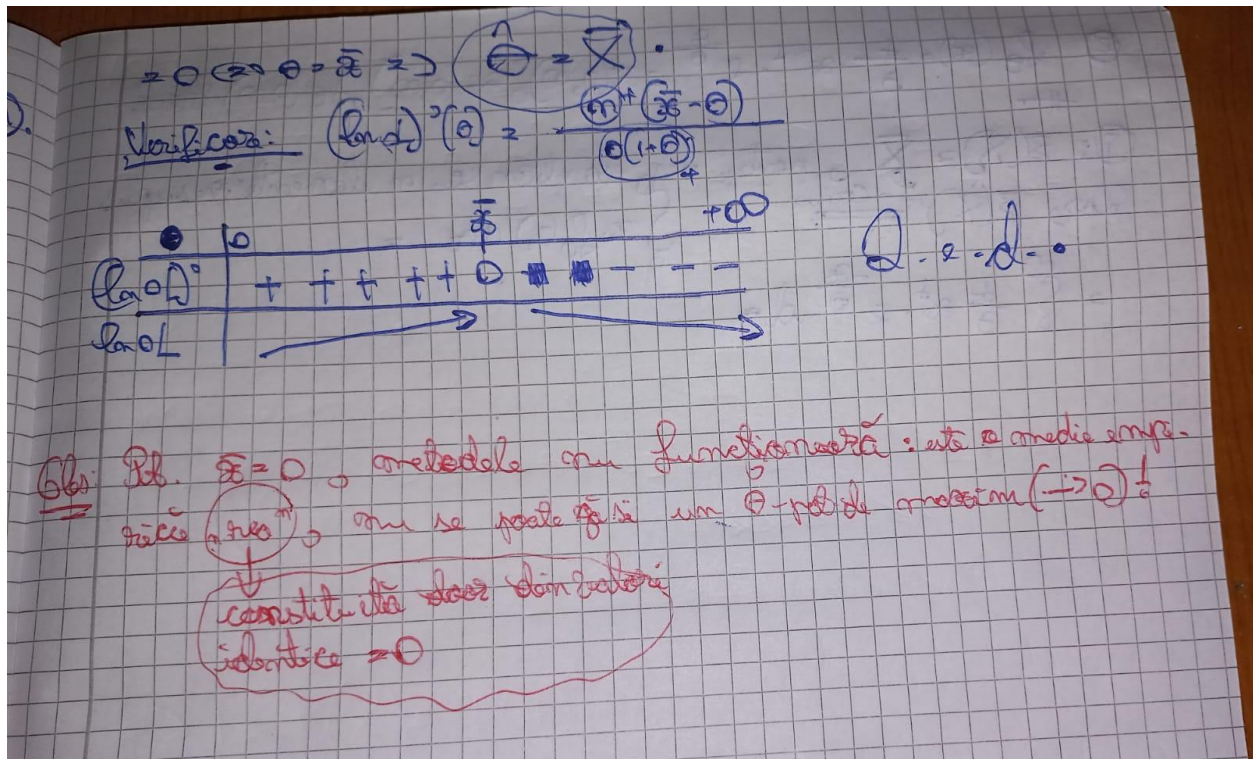 = 0 <=> θ = x̄ => θ̂ = X̄.
).
Verificare: (ln L)'(θ) = n⁺(x̄ - θ) / θ(1+θ)₊
θ | 0 x̄ +∞
(ln L)' | + + + + + 0 - - -
ln L
Q.e.d.
Obs: Pt. x̄ = 0, metodele nu funcționează: este o medie empi-
rică „rea", nu se poate găsi un θ-pct de maxim (→0)!
constituită doar din valori
identice = 0